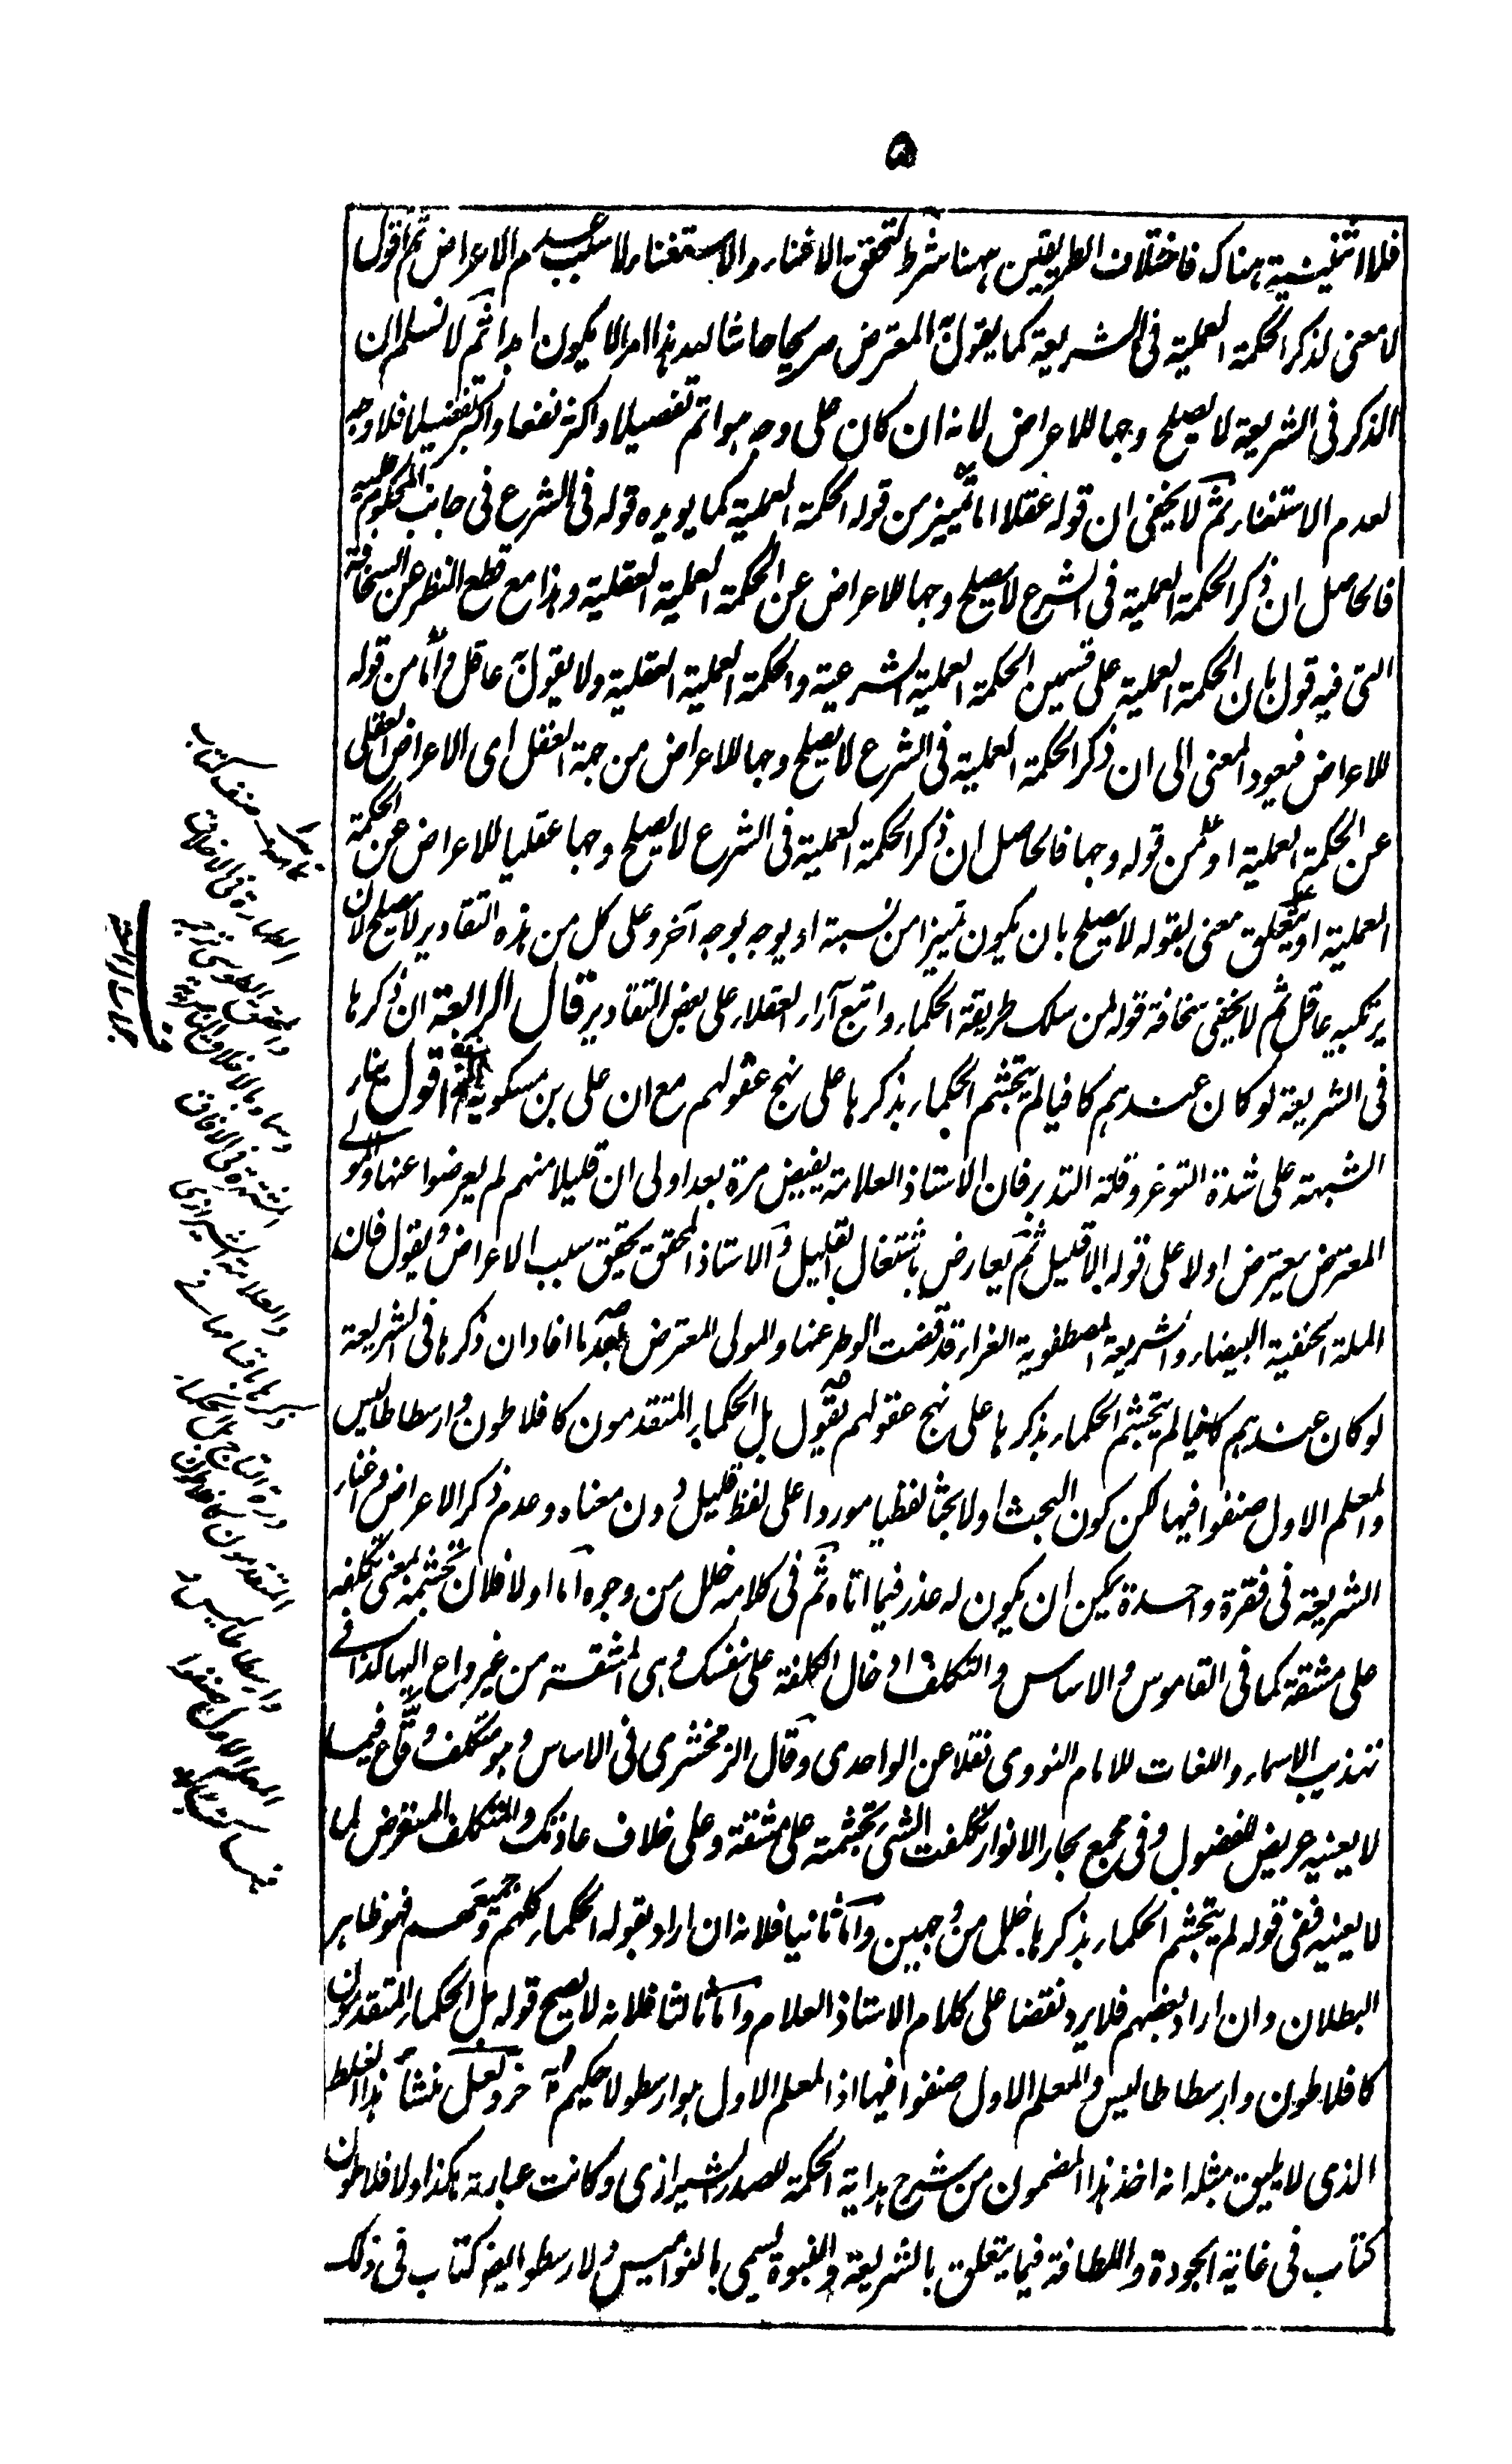 ۵
فلا اثنينية هناك فاختلاف الطريقين ههنا شرط لتحقق الاغناء والاستغناء لا سبب عدم الاعراض ثم اقول
لا معنى لذكر الحكمة العملية فى الشريعة كما يقول المعترض صريحا حاشا لله هذا امر لا يكون ابدا ثم لا نسلم ان
الذكر فى الشريعة لا يصلح وجها للاعراض لانه ان كان على وجه هو اتم تفصيلا واكثر نفعا واكثر تفضيلا فلا وجه
لعدم الاستغناء ثم لا يخفى ان قوله عقلا اما تمييز من قوله الحكمة العملية كما يويده قوله فى الشرع فى جانب المحكوم عليه
فالحاصل ان ذكر الحكمة العملية فى الشرع لا يصلح وجها للاعراض عن الحكمة العملية العقلية وهذا مع قطع النظر عن السخافة
التى فيه قول بان الحكمة العملية على قسمين الحكمة العملية الشرعية والحكمة العملية العقلية ولا يقول به عاقل واما من قوله
للاعراض فيعود المعنى الى ان ذكر الحكمة العملية فى الشرع لا يصلح وجها للاعراض من جهة العقل اى الاعراض العقلى
عن الحكمة العملية او من قوله وجها فالحاصل ان ذكر الحكمة العملية فى الشرع لا يصلح وجها عقليا للاعراض عن الحكمة
العملية او متعلق معنى بقوله لا يصلح بان يكون تمييزا من نسبته او يوجه بوجه آخر وعلى كل من هذه التقادير لا يصلح لان
يرتكبه عاقل ثم لا يخفى سخافة قوله لمن سلك طريقة الحكماء واتبع آراء العقلاء على بعض التقادير قال الرابعة ان ذكرها
فى الشريعة لو كان عندهم كافيا لم يتجشم الحكماء بذكرها على نهج عقولهم مع ان على بن مسكويه الخ اقول بناء
الشبهة على شدة التوغر وقلة التدبر فان الاستاذ العلامة يفيض مرة بعد اولى ان قليلا منهم لم يعرضوا عنها والمولى
المعترض يعترض اولا على قوله الا قليل ثم يعارض باشتغال القليل والاستاذ المحقق يحقق سبب الاعراض ويقول فان
الملة الحنفية البيضاء والشريعة المصطفوية الغراء قد قضت الوطر عنها والمولى المعترض بعد ما افاد ان ذكرها فى الشريعة
لو كان عندهم كافيا لم يتجشم الحكماء بذكرها على نهج عقولهم يقول بل الحكماء المتقدمون كافلاطون وارسطاطاليس
والمعلم الاول صنفوا فيها لكن كون البحث اولا بحثا لفظيا موردا على لفظ قليل دون معناه وعدم ذكر الاعراض واغناء
الشريعة فى فقرة واحدة يمكن ان يكون له عذر فيما اتاه ثم فى كلامه خلل من وجوه اما اولا فلان تجشمه بمعنى تكلفه
على مشقة كما فى القاموس والاساس والتكلف ادخال الكلفة على نفسك وهى المشقة من غير داع اليها كذا فى
تهذيب الاسماء واللغات للامام النووى نقلا عن الواحدى وقال الزمخشرى فى الاساس وهو متكلف وقاع فيما
لا يعنيه عريض للفضول وفى مجمع بحار الانوار تكلفت الشئ تجشمته على مشقة وعلى خلاف عادتك والمتكلف المتعرض لما
لا يعنيه ففى قوله لم يتجشم الحكماء بذكرها خلل من وجهين واما ثانيا فلانه ان اراد بقوله الحكماء كلهم وجميعهم فهو ظاهر
البطلان وان اراد بعضهم فلا يرد نقضا على كلام الاستاذ العلام واما ثالثا فلانه لا يصح قوله بل الحكماء المتقدمون
كافلاطون وارسطاطاليس والمعلم الاول صنفوا فيها اذ المعلم الاول هو ارسطو لا حكيم آخر ولعل منشأ هذا الغلط
الذى لا يليق بمثله انه اخذ هذا المضمون من شرح هداية الحكمة للصدر الشيرازى وكانت عبارته هكذا ولافلاطون
كتاب فى غاية الجودة واللطافة فيما يتعلق بالشريعة والنبوة يسمى بالنواميس ولارسطو ايضا كتاب فى ذلك
صنف كتاب
الطهارة فى الاخلاق
والمحقق الطوسى
وسماه بالاخلاق الناصرية
المشتهرة فى الآفاق
والعلامة الشيرازى
ذكرها باقسامها فى
درة التاج بل الحكماء
المتقدمون كافلاطون
وارسطاطاليس و
المعلم الاول صنفوا
فيها